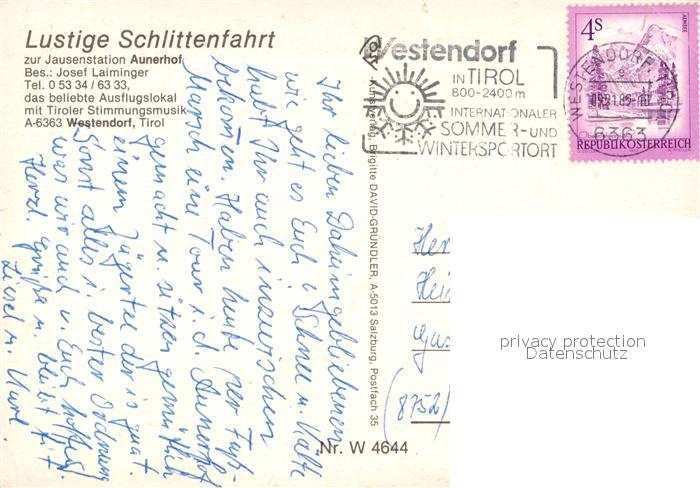 Lustige Schlittenfahrt
zur Jausenstation Aunerhof
Bes.: Josef Laiminger
Tel. 0 53 34 / 63 33,
das beliebte Ausflugslokal
mit Tiroler Stimmungsmusik
A-6363 Westendorf, Tirol
Ihr lieben Daheimgebliebenen
wie geht es Euch? Schnee u. Kälte
habt Ihr auch inzwischen
bekommen. Haben heute per Fuß-
Marsch eine Tour i. d. Aunerhof
gemacht u. sitzen gemütlich
einem Jägertee der is gut.
Sonst alles i. bester Ordnung
was wir auch v. Euch hoffen.
Herzl. Grüße u. bleibt fit
u. Karl.
Kunstverlag, Brigitte DAVID-GRÜNDLER, A-5013 Salzburg, Postfach 35
Nr. W 4644
Westendorf
IN TIROL
800-2400m
INTERNATIONALER
SOMMER- UND
WINTERSPORTORT
WESTENDORF
6363
4S
ALMSEE
REPUBLIK ÖSTERREICH
Her
Hei
(8752)
privacy protection
Datenschutz